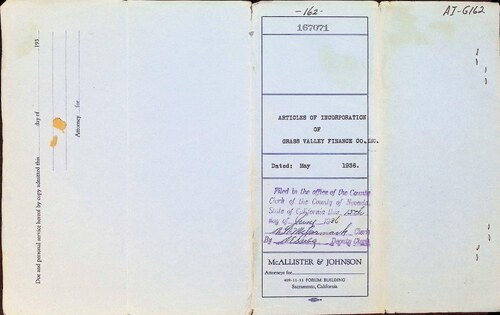 -162-
AJ-G162
167071
ARTICLES OF INCORPORATION
OF
GRASS VALLEY FINANCE CO., INC.
Dated: May 1936.
Filed in the office of the County
Clerk of the County of Nevada,
State of California this 15th
day of June 1936
Clerk
By Deputy Clerk
MCALLISTER & JOHNSON
Attorneys for
409-11-13 FORUM BUILDING
Sacramento, California
Due and personal service hereof by copy admitted this day of 193
Attorney for